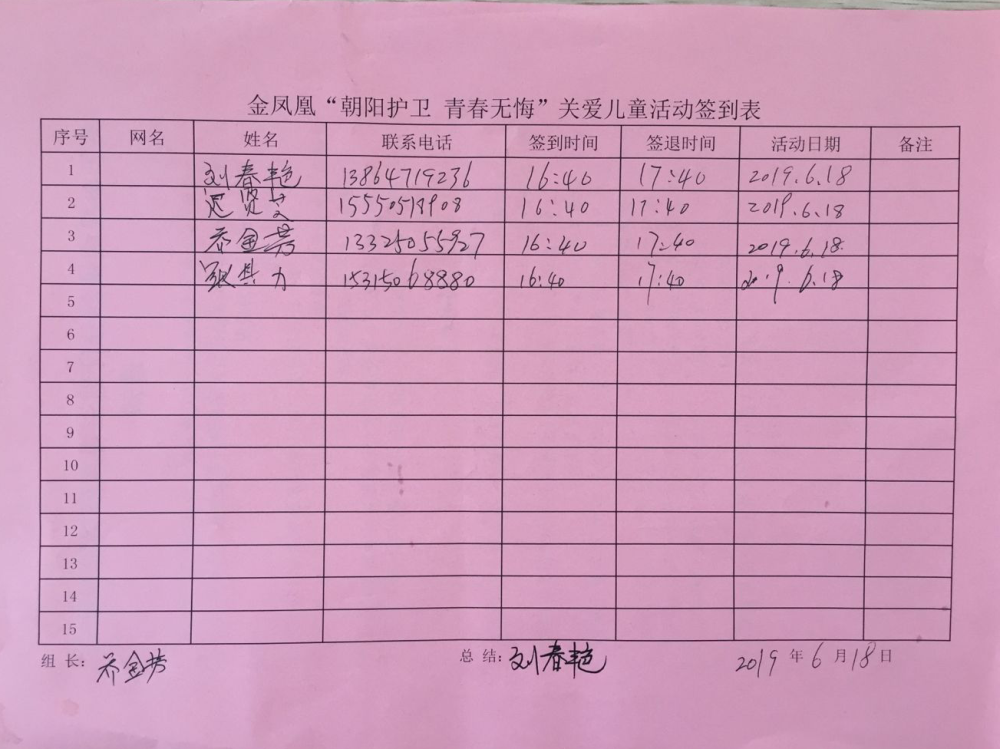 金凤凰“朝阳护卫 青春无悔”关爱儿童活动签到表
序号 网名 姓名 联系电话 签到时间 签退时间 活动日期 备注
1 刘春艳 13864719236 16:40 17:40 2019.6.18
2 迟贤 16:40 17:40 2019.6.18
3 乔金芳 13325055927 16:40 17:40 2019.6.18
4 张其力 15315068880 16:40 17:40 2019.6.18
5
6
7
8
9
10
11
12
13
14
15
组 长: 乔金芳 总 结: 刘春艳 2019 年 6 月 18 日